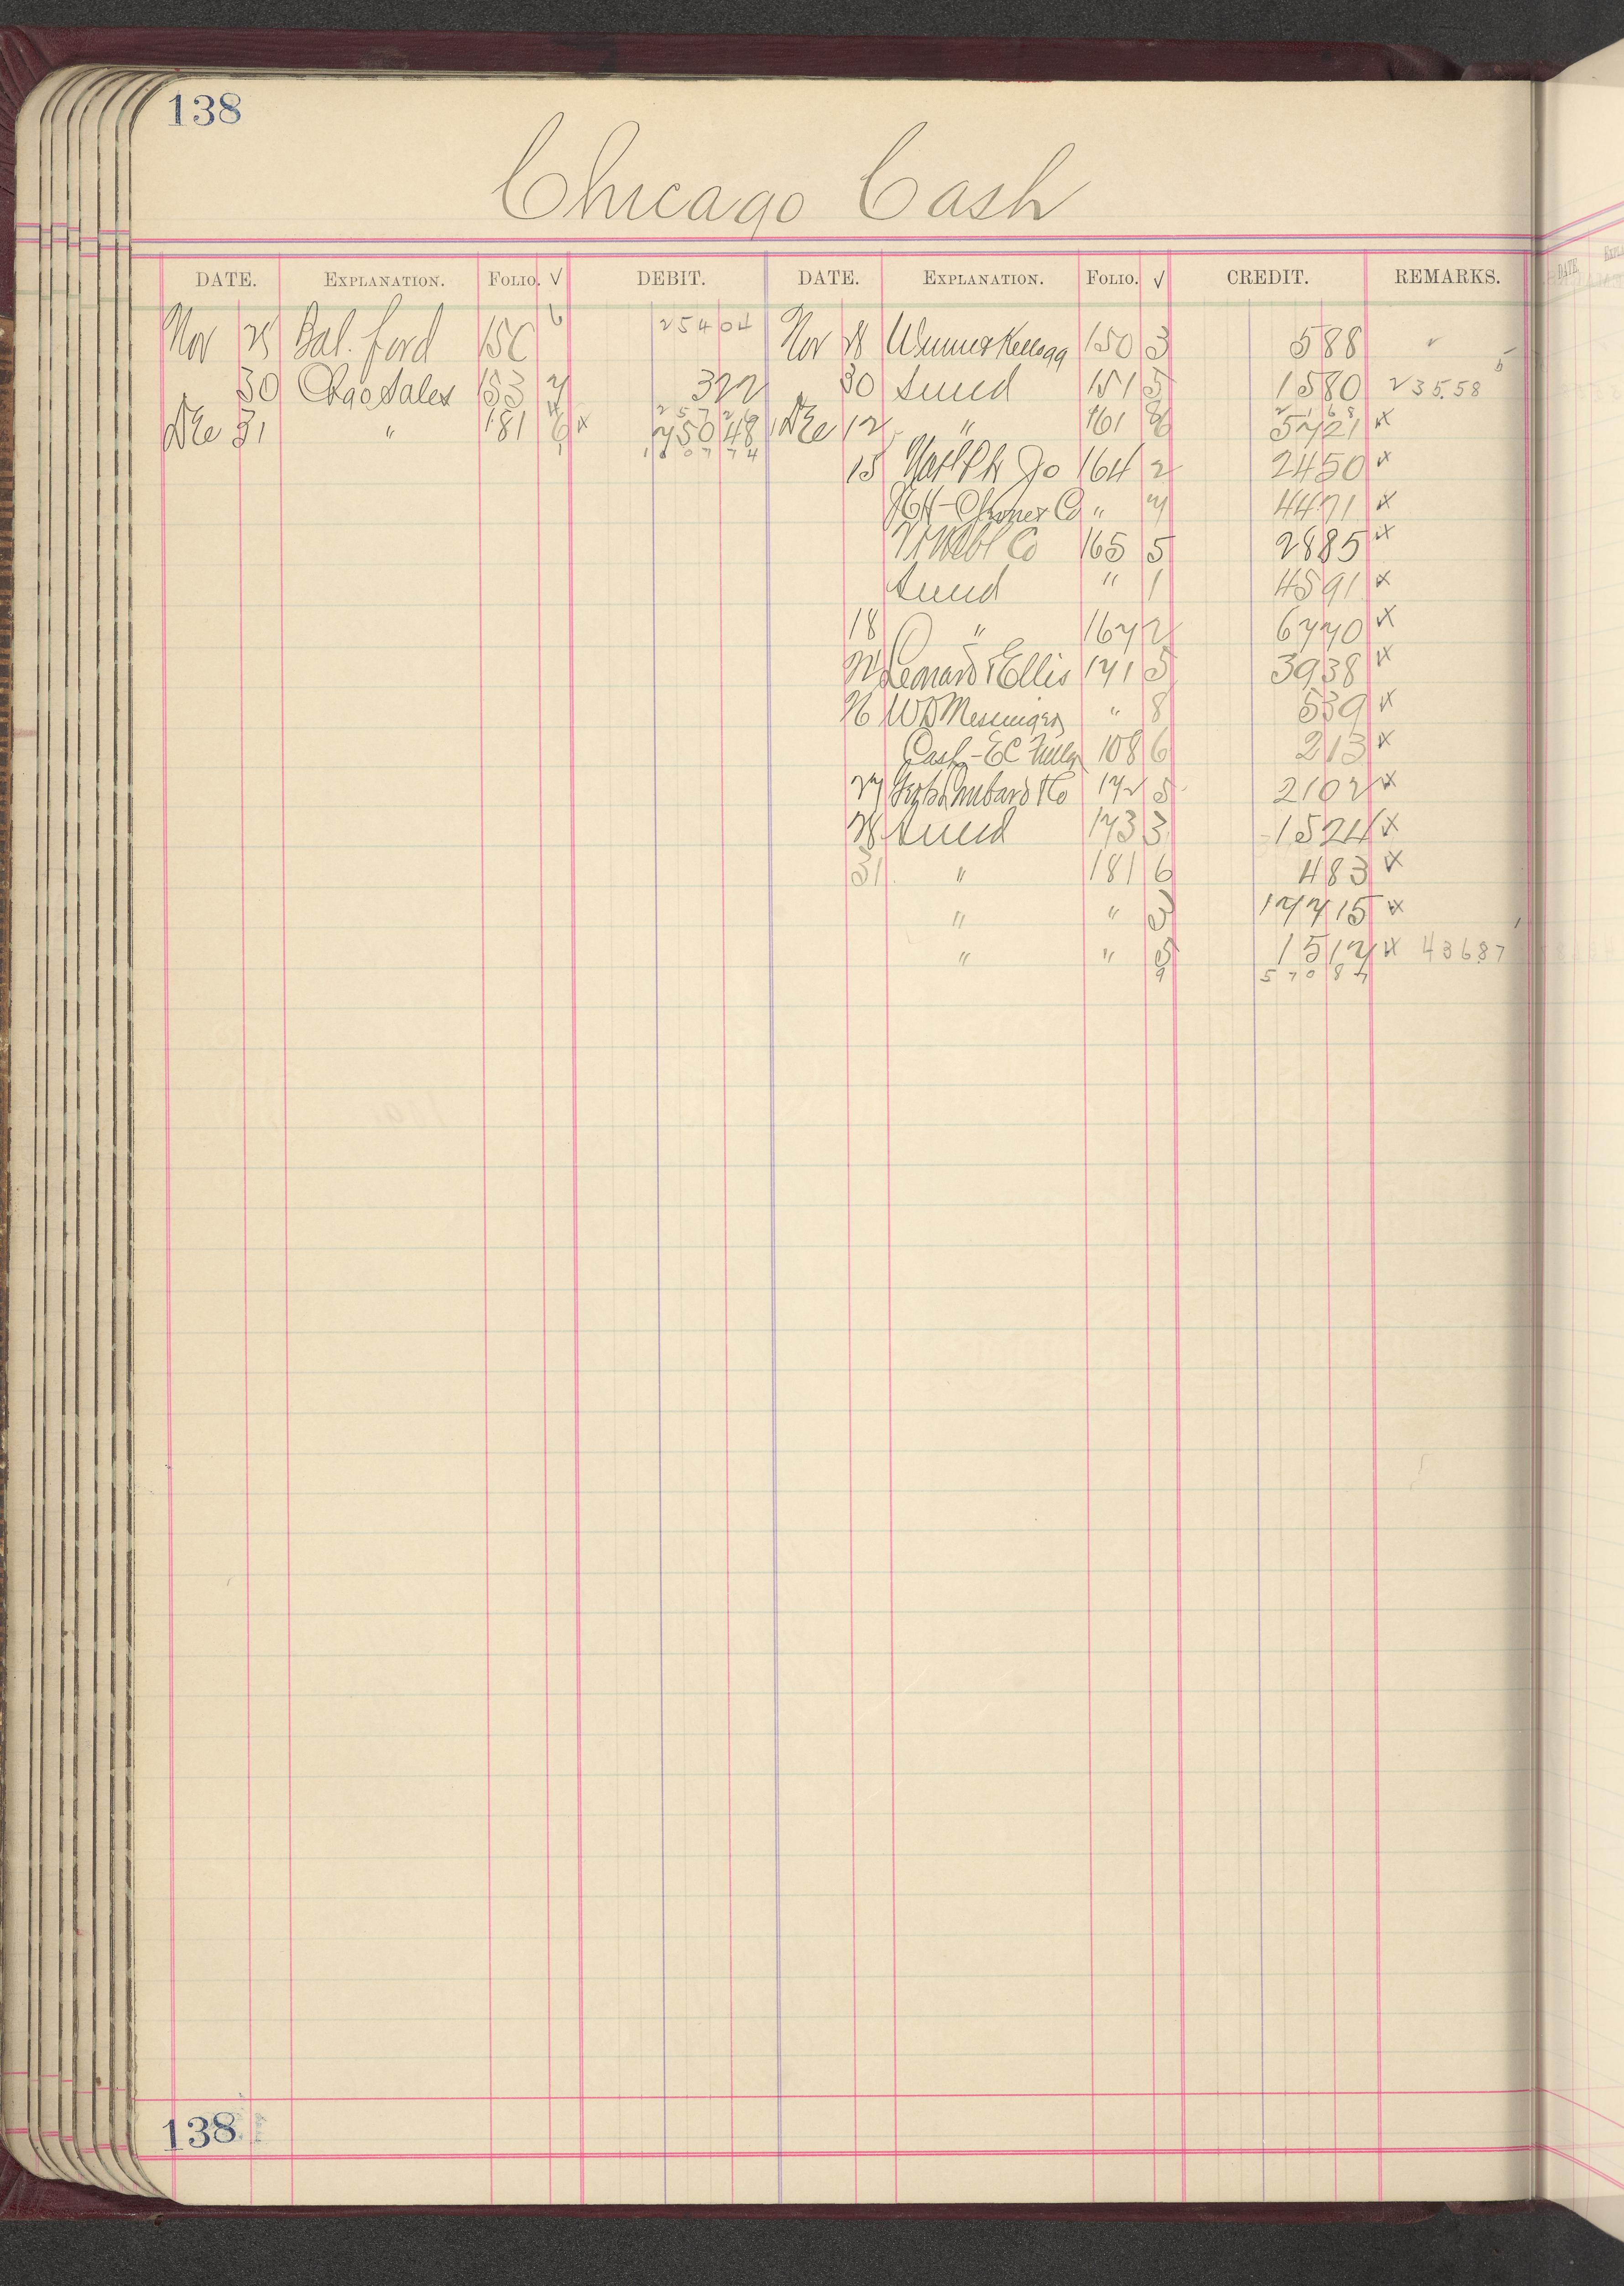 138
Chicago Cash
DATE. EXPLANATION. FOLIO. √ DEBIT. DATE. EXPLANATION. FOLIO. √ CREDIT. REMARKS.
Nov 28 Bal. ford 150 6 254 04 Nov 28 Werner Kellogg 150 3 5 88 √
30 Chgo Sales 153 7 3 22 30 Sund 151 5 15 80 235.58
257 26 21 68
Dec 31 " 181 6 x 750 48 Dec 12 " 161 8 57 21 x
1007 74
15 164 2 24 50 x
Co " 7 44 71 x
Co 165 5 28 85 x
Sund " 1 45 91 x
18 " 167 2 67 70 x
Leonard & Ellis 171 5 39 38 x
26 WD Messinger " 8 5 39 x
Cash - EC 108 6 2 13 x
27 Hubbard & Co 172 5 21 02 x
28 Sund 173 3 15 24 x
31 " 181 6 4 83 x
" " 3 177 15 x
" " 5 15 17 x 436 87
9 570 87
138